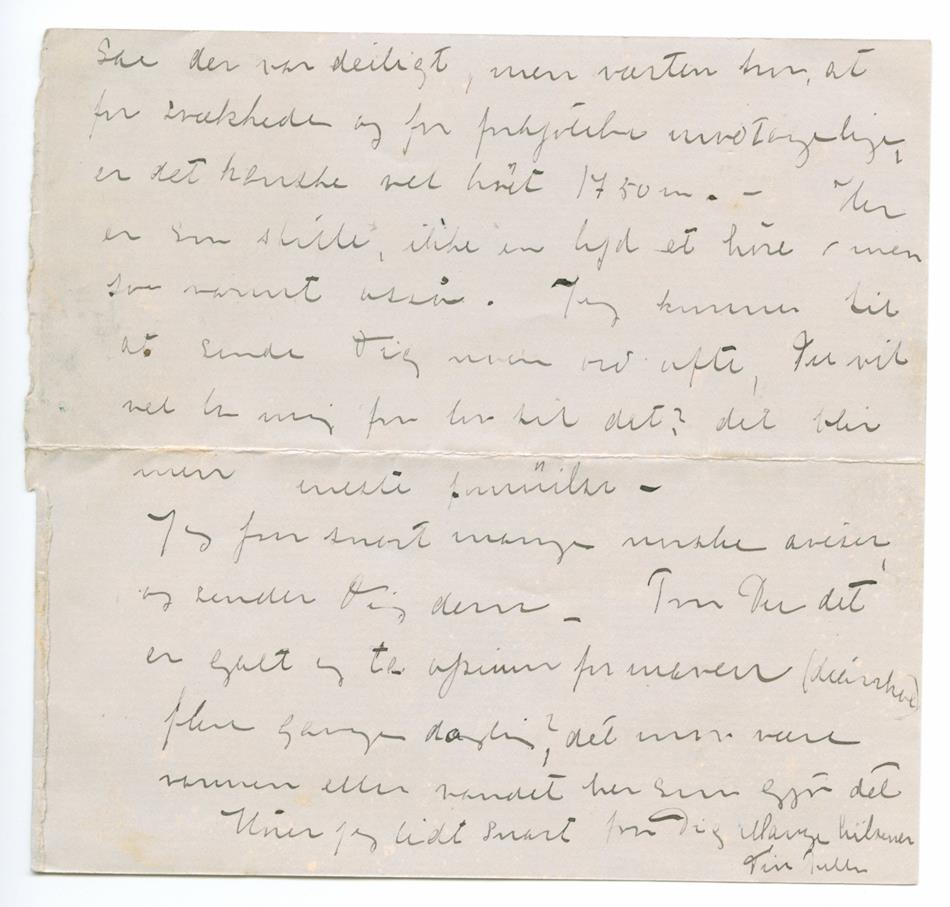 sae der var deiligt, men værten tror, at
for svækkede og for forkjölelse modtagelige,
er det kanske vel höit 1750 m. - Her
er saa stille, ikke en lyd at höre - men
saa varmt ossaa. Jeg kommer til
at sende Dig noen ord ofte, Du vil
vel la mig faa lov til det? det blir
min eneste fornöilse -
Jeg faar snart mange norske aviser,
og sender Dig dem - Tror Du det
er galt og ta opium for maven (diarrhoe)
flere gange daglig?, det maa være
varmen eller vandet her som gjör det
Hörer jeg lidt snart fra Dig Mange hilsener
Din